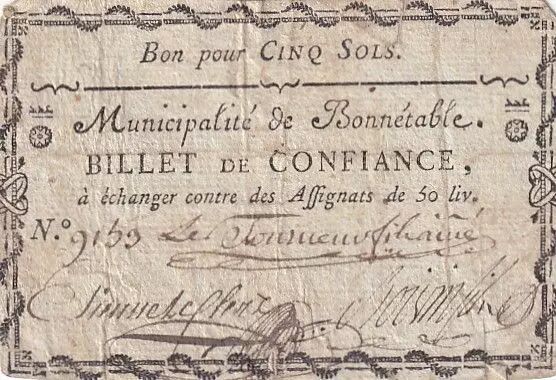 Bon pour CINQ SOLS.
Municipalité de Bonnétable.
BILLET DE CONFIANCE,
à échanger contre des Aſſignats de 50 liv.
N.º 9153 Le Tourneur fils ainé